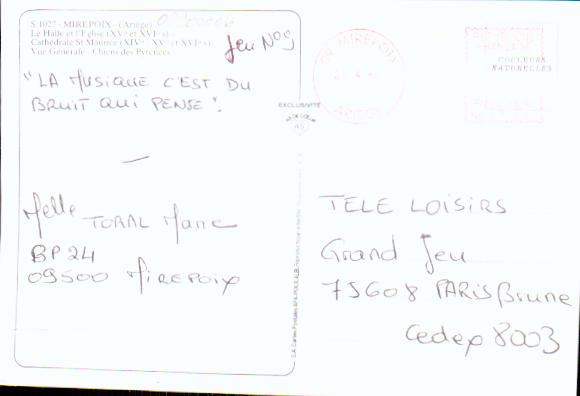 S 1027 - MIREPOIX - (Ariège)
Le Halle et l'Eglise (XVe et XVIe s)
Cathédrale St Maurice (XIVe XVe et XVIe s)
Vue Générale - Chiens des Pyrénées
Jeu N°9
"LA MUSIQUE C'EST DU
BRUIT QUI PENSE".
Melle TORAL Marie
BP 24
09500 MIREPOIX
EXCLUSIVITÉ
AS DE COEUR
AS
09 MIREPOIX
ARIEGE
COULEURS
NATURELLES
TELE LOISIRS
Grand Jeu
75608 PARIS Brune
Cedex 8003